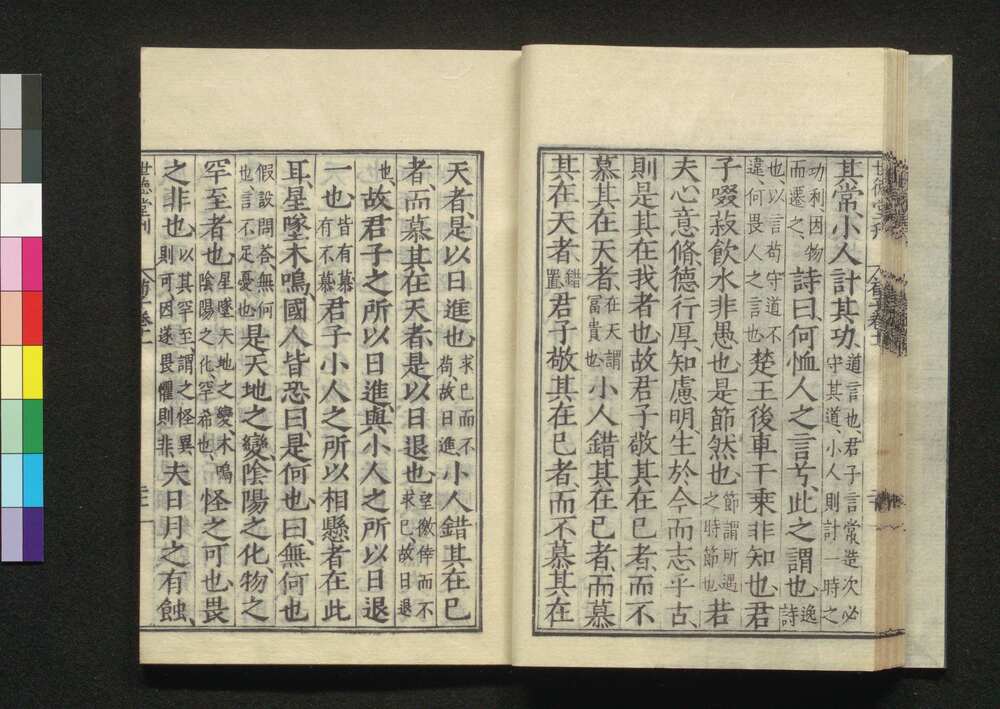 其常、小人計其功、道言也、君子言常、造次必守其道、小人則計一時之
功利因物而遷之、詩曰、何恤人之言兮、此之謂也、逸詩
也以言苟守道不違、何畏人之言也楚王後車千乗非知也、君
子啜菽飲水非愚也是節然也、節謂所遇之時節也若
夫心意脩德行厚、知慮明生於今而志乎古、
則是其在我者也、故君子敬其在己者、而不
慕其在天者、在天謂富貴也小人錯其在己者、而慕
其在天者、錯置君子敬其在己者、而不慕其在
天者、是以日進也、求己而不苟、故日進小人錯其在己
者、而慕其在天者、是以日退也、望徼倖而不求己、故日退
也、故君子之所以日進、與小人之所以日退
一也、皆有慕有不慕君子小人之所以相懸者在此
耳、星墜木鳴、國人皆恐曰、是何也、曰、無何也
假設問荅無何也言不足憂也是天地之變、陰陽之化、物之
罕至者也、星墜天地之變木鳴陰陽之化、罕希也、怪之可也、畏
之非也、以其罕至、謂之怪異則可因遂畏懼則非夫日月之有蝕、
世德堂刊